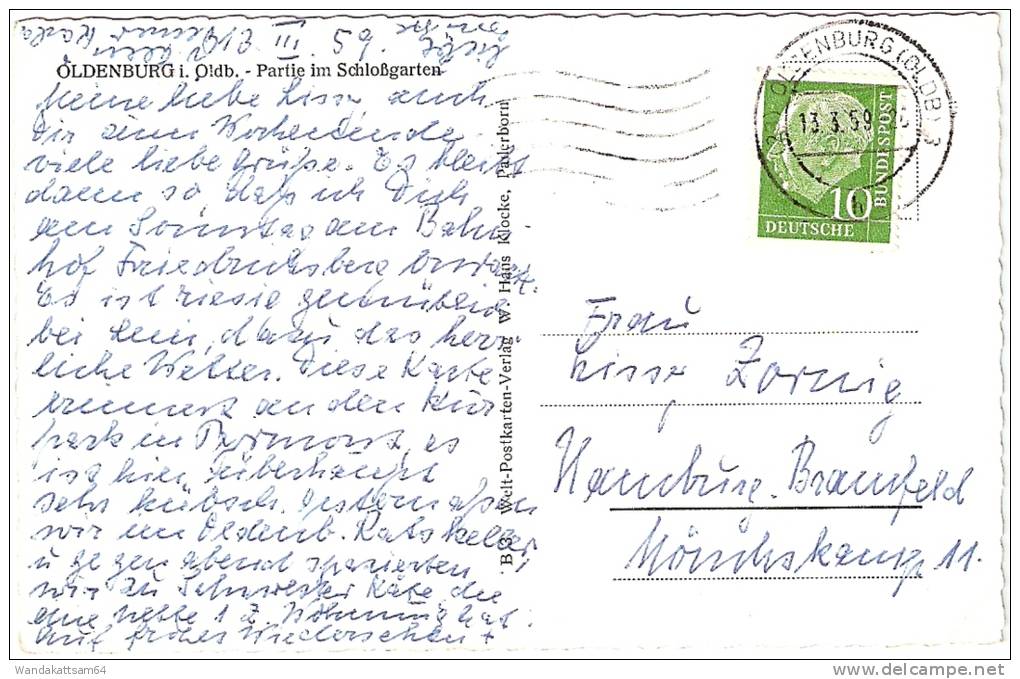 OLDENBURG i. Oldb. - Partie im Schloßgarten
Meine liebe Lissy, auch
Dir zum Wochenende
viele liebe Grüße. Es bleibt
dann so, daß ich Dich
am Sonntag am Bahn
hof Friedrichsberg
Es ist riesig gemütlich
bei dazu das herr
liche Wetter. Diese Karte
erinnert an den Kur
park in Pyrmont, es
ist hier überhaupt
sehr hübsch. Gestern aßen
wir im Oldenb. Ratskeller
u gegen abend spazierten
wir zu Schwester Käte, die
eine nette 1 Z. Wohnung hat.
Auf frohes Wiedersehen +
B 3 Welt-Postkarten-Verlag W. Hans Klocke, Paderborn
OLDENBURG (OLDB) 3
13.3.59
10
DEUTSCHE
BUNDESPOST
Frau
Lissy Zornig
Hamburg-Bramfeld
Mönchskamp 11.
Wandakattsam64
www.delcampe.net